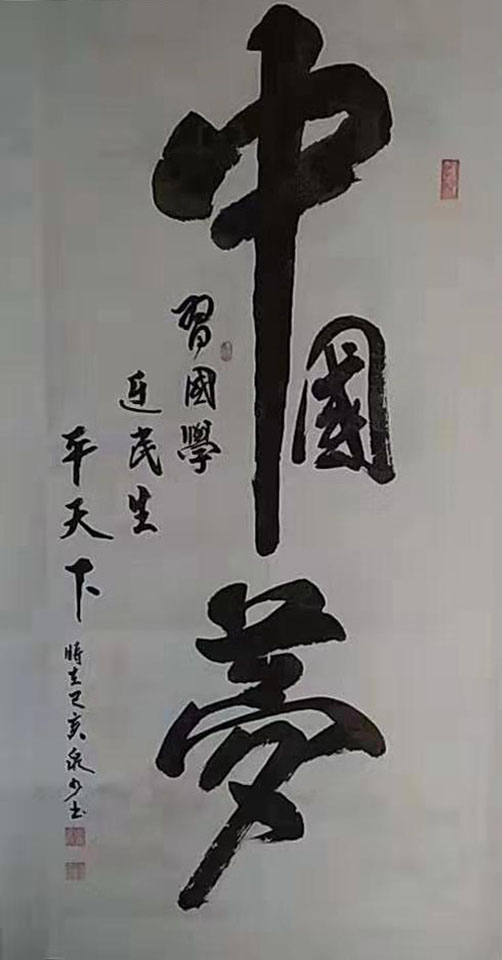 中國夢
習國學
近民生
平天下
時在己亥泉少書